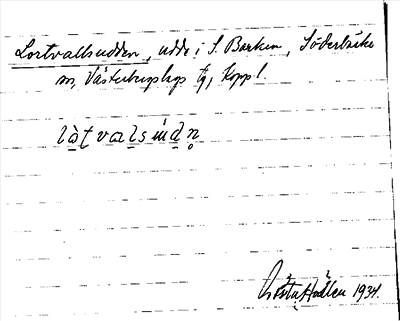 Lortvallsudden, udde i S. Barken, Söderbärke
sn, Västerbergslags tg, Koppl.
làt valsùdn̥
Gösta Hedlen 1934.